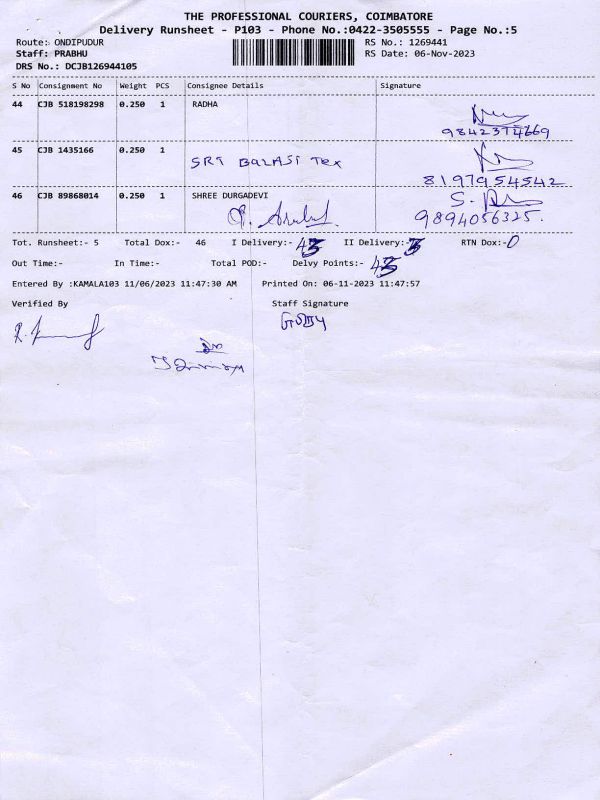 THE PROFESSIONAL COURIERS, COIMBATORE
Delivery Runsheet - P103 - Phone No.:0422-3505555 - Page No.:5
Route: ONDIPUDUR RS No.: 1269441
Staff: PRABHU RS Date: 06-Nov-2023
DRS No.: DCJB126944105
S No Consignment No Weight PCS Consignee Details Signature
44 CJB 518198298 0.250 1 RADHA
45 CJB 1435166 0.250 1
SRI BALAJI Tex
8197954542
46 CJB 89868014 0.250 1 SHREE DURGADEVI
9894056325.
Tot. Runsheet:- 5 Total Dox:- 46 I Delivery:- 43 II Delivery:- 3 RTN Dox:- 0
Out Time:- In Time:- Total POD:- Delvy Points:- 43
Entered By :KAMALA103 11/06/2023 11:47:30 AM Printed On: 06-11-2023 11:47:57
Verified By Staff Signature